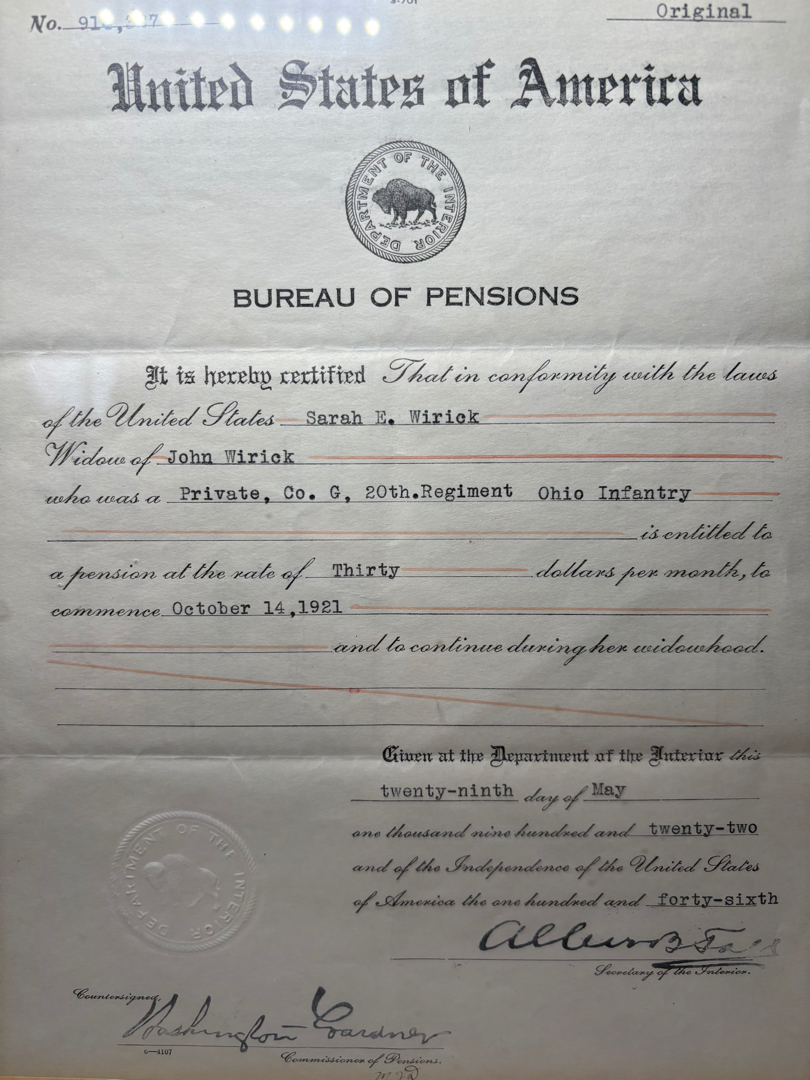 3-701
No. Original
United States of America
DEPARTMENT OF THE INTERIOR
BUREAU OF PENSIONS
It is hereby certified That in conformity with the laws
of the United States Sarah E. Wirick
Widow of John Wirick
who was a Private, Co. G, 20th.Regiment Ohio Infantry
is entitled to
a pension at the rate of Thirty dollars per month, to
commence October 14,1921
and to continue during her widowhood.
Given at the Department of the Interior this
twenty-ninth day of May
one thousand nine hundred and twenty-two
and of the Independence of the United States
of America the one hundred and forty-sixth
DEPARTMENT OF THE INTERIOR
Albert B Fall
Secretary of the Interior.
Countersigned,
Washington Gardner
6—4107
Commissioner of Pensions.